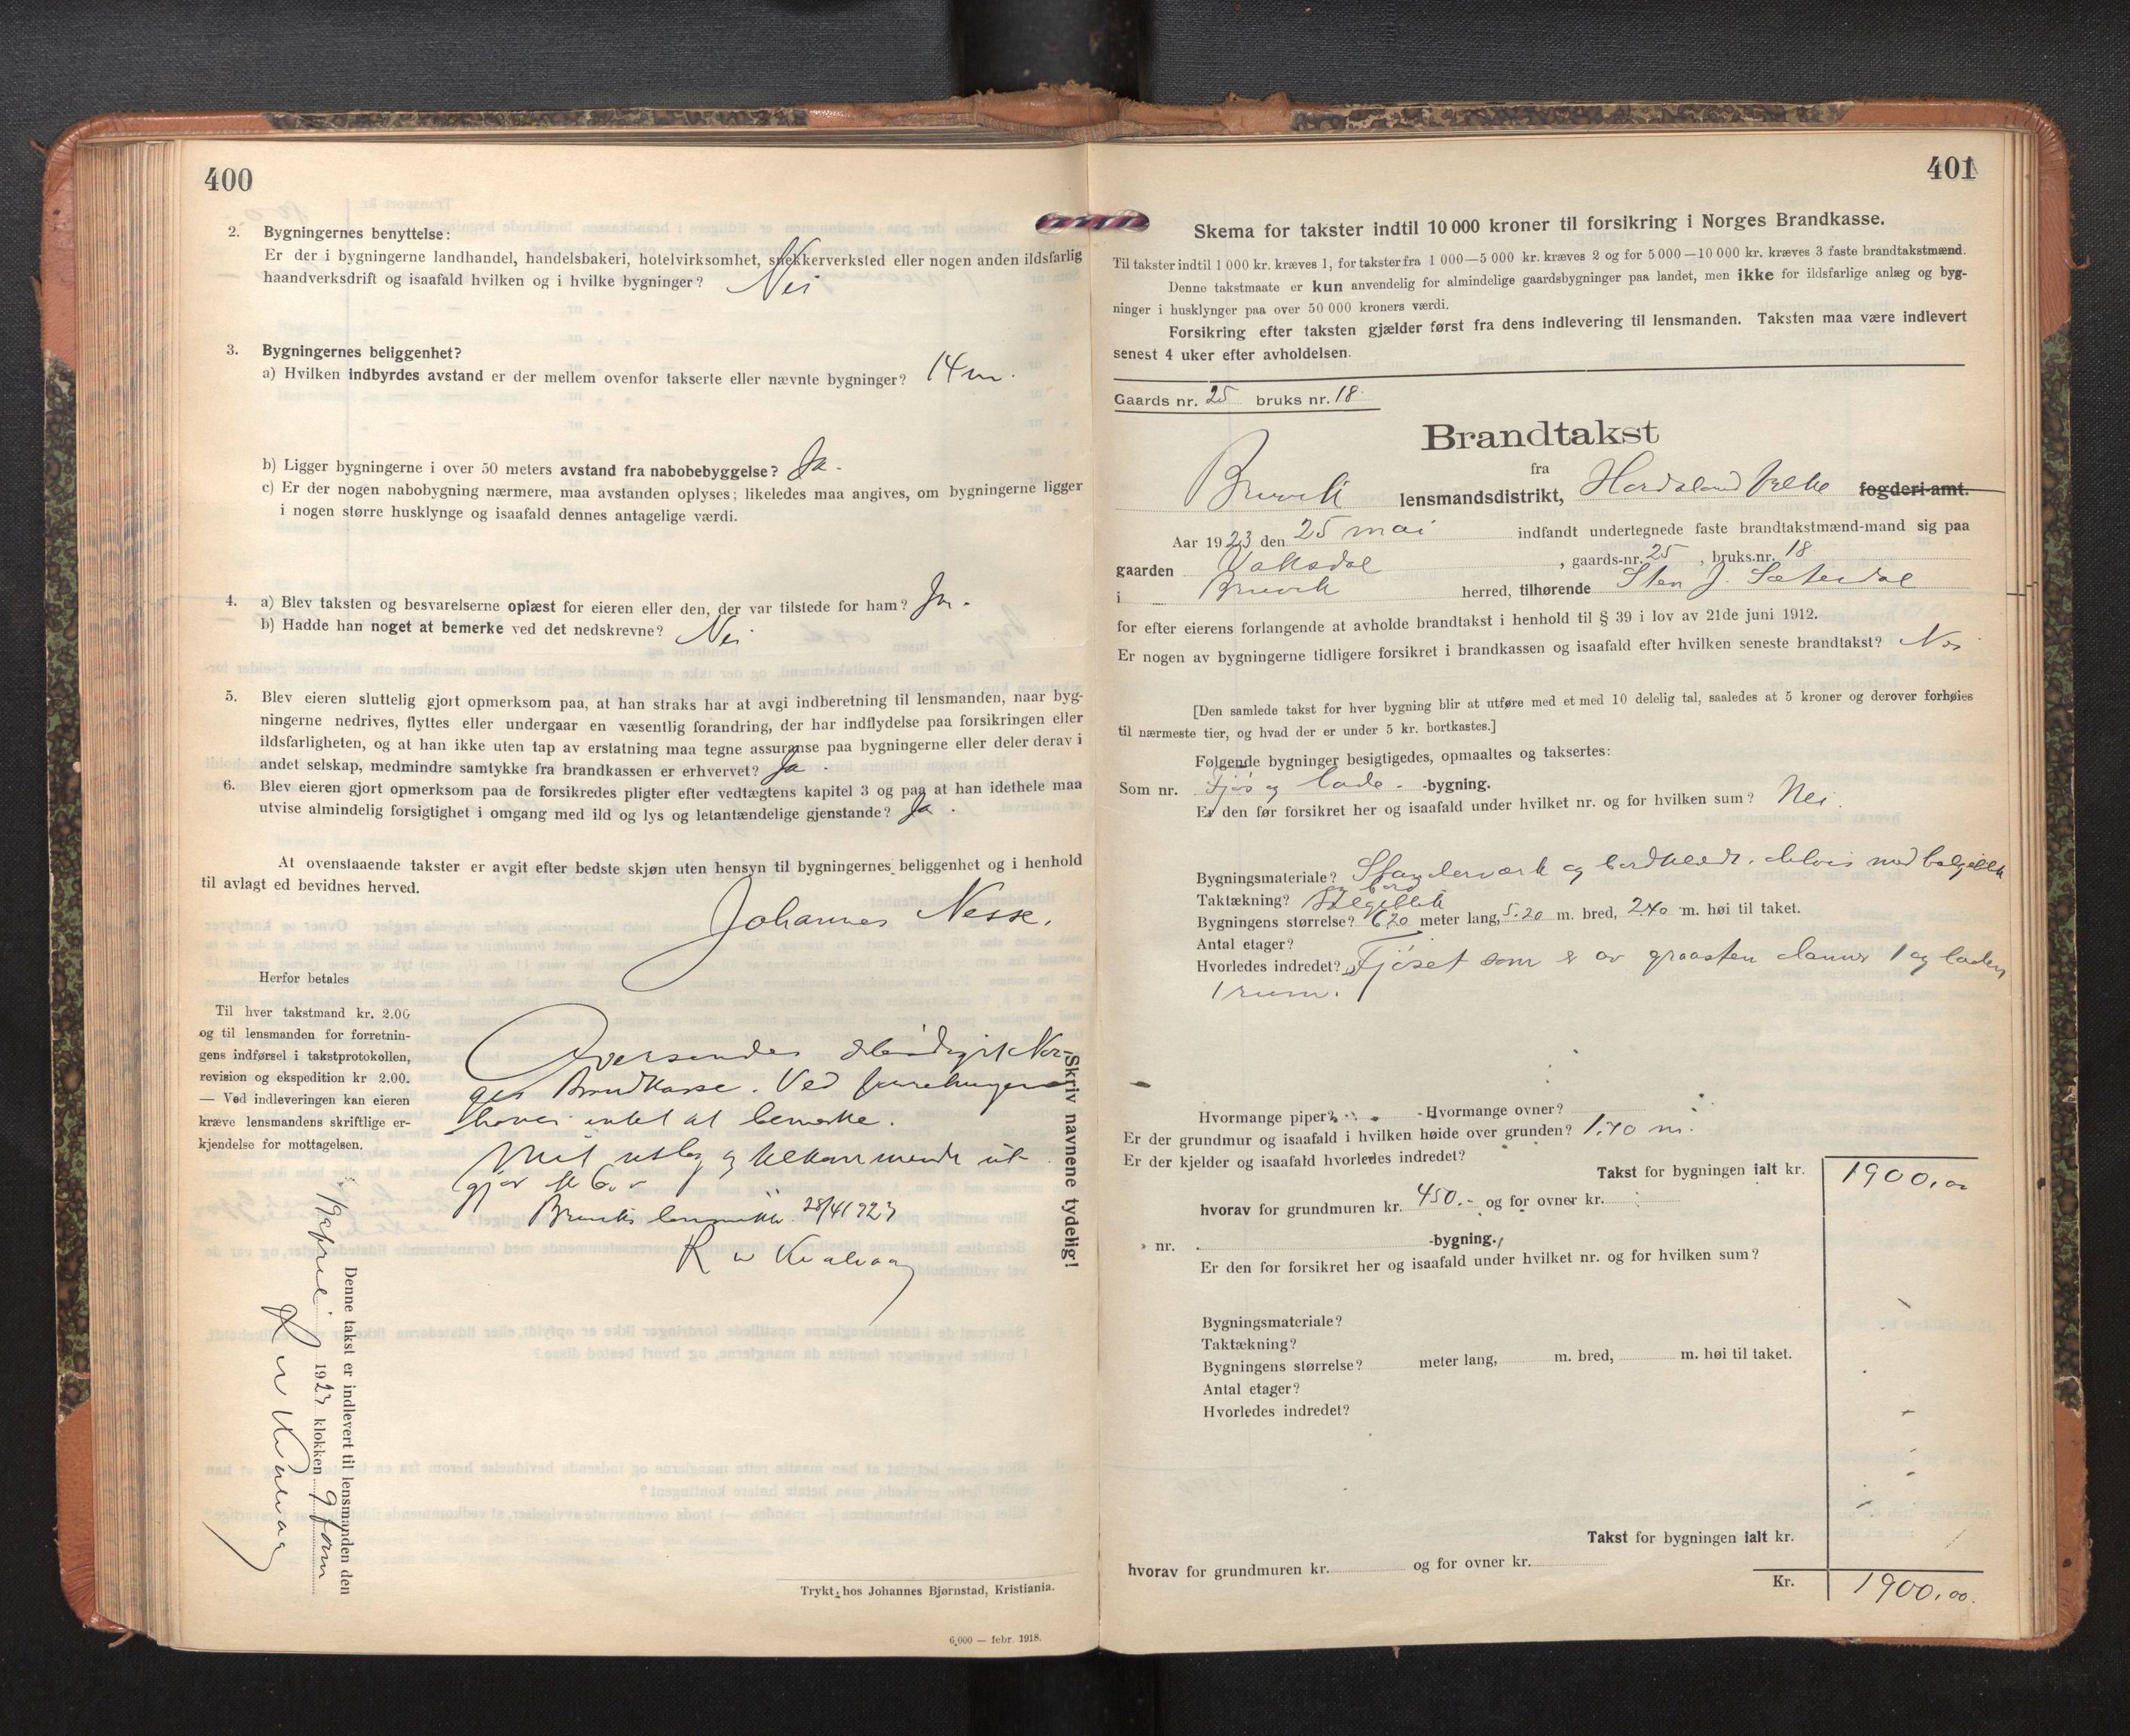 400
2. Bygningernes benyttelse:
Er der i bygningerne landhandel, handelsbakeri, hotelvirksomhet, snekkerverksted eller nogen anden ildsfarlig
haandverksdrift og isaafald hvilken og i hvilke bygninger? Nei
3. Bygningernes beliggenhet?
a) Hvilken indbyrdes avstand er der mellem ovenfor takserte eller nævnte bygninger? 14 m.
b) Ligger bygningerne i over 50 meters avstand fra nabobebyggelse? Ja.
c) Er der nogen nabobygning nærmere, maa avstanden oplyses; likeledes maa angives, om bygningerne ligger
i nogen større husklynge og isaafald dennes antagelige værdi.
4. a) Blev taksten og besvarelserne oplæst for eieren eller den, der var tilstede for ham? Ja.
b) Hadde han noget at bemerke ved det nedskrevne? Nei
5. Blev eieren sluttelig gjort opmerksom paa, at han straks har at avgi indberetning til lensmanden, naar byg-
ningerne nedrives, flyttes eller undergaar en væsentlig forandring, der har indflydelse paa forsikringen eller
ildsfarligheten, og at han ikke uten tap av erstatning maa tegne assuranse paa bygningerne eller deler derav i
andet selskap, medmindre samtykke fra brandkassen er erhvervet? Ja.
6. Blev eieren gjort opmerksom paa de forsikredes pligter efter vedtægtens kapitel 3 og paa at han idethele maa
utvise almindelig forsigtighet i omgang med ild og lys og letantændelige gjenstande? Ja.
At ovenstaaende takster er avgit efter bedste skjøn uten hensyn til bygningernes beliggenhet og i henhold
til avlagt ed bevidnes herved.
Johannes Nesse.
Herfor betales
Til hver takstmand kr. 2.00
og til lensmanden for forretnin-
gens indførsel i takstprotokollen,
revision og ekspedition kr 2.00.
— Ved indleveringen kan eieren
kræve lensmandens skriftlige er-
kjendelse for mottagelsen.
Oversendes Nor-
ges Brandkasse. Ved
haves intet at bemerke.
Mit utlæg og tilkommende ut-
gjør kr 6.
28/4 1923
R W Kvalvaag
Skriv navnene tydelig!
Denne takst er indlevert til lensmanden den
april 1923 klokken 9 form
R W Kvalvaag
Trykt hos Johannes Bjørnstad, Kristiania.
6,000 — febr. 1918.
401
Skema for takster indtil 10 000 kroner til forsikring i Norges Brandkasse.
Til takster indtil 1 000 kr. kræves 1, for takster fra 1 000—5 000 kr. kræves 2 og for 5 000—10 000 kr. kræves 3 faste brandtakstmænd.
Denne takstmaate er kun anvendelig for almindelige gaardsbygninger paa landet, men ikke for ildsfarlige anlæg og byg-
ninger i husklynger paa over 50 000 kroners værdi.
Forsikring efter taksten gjælder først fra dens indlevering til lensmanden. Taksten maa være indlevert
senest 4 uker efter avholdelsen.
Gaards nr. 25 bruks nr. 18.
Brandtakst
fra
Bruvik lensmandsdistrikt, Hordaland fylke fogderi-amt.
Aar 1923 den 25 mai indfandt undertegnede faste brandtakstmænd-mand sig paa
gaarden Vaksdal, gaards-nr. 25, bruks.nr. 18.
i Bruvik herred, tilhørende Sten J. Sæterdal
for efter eierens forlangende at avholde brandtakst i henhold til § 39 i lov av 21de juni 1912.
Er nogen av bygningerne tidligere forsikret i brandkassen og isaafald efter hvilken seneste brandtakst? Nei
[Den samlede takst for hver bygning blir at utføre med et med 10 delelig tal, saaledes at 5 kroner og derover forhøies
til nærmeste tier, og hvad der er under 5 kr. bortkastes.]
Følgende bygninger besigtigedes, opmaaltes og taksertes:
Som nr. Fjøs og lade. -bygning.
Er den før forsikret her og isaafald under hvilket nr. og for hvilken sum? Nei.
Bygningsmateriale? Standerværk og bordklædt, delvis med bølgeblik
og bord
Taktækning? Bølgeblik
Bygningens størrelse? 6,20 meter lang, 5.20 m. bred, 2.40 m. høi til taket.
Antal etager?
Hvorledes indredet? Fjøset som er av graasten danner 1 og laden
1 rum.
Hvormange piper? Hvormange ovner?
Er der grundmur og isaafald i hvilken høide over grunden? 1,70 m.
Er der kjelder og isaafald hvorledes indredet?
Takst for bygningen ialt kr. 1900,00
hvorav for grundmuren kr. 450.- og for ovner kr.
" nr. -bygning.
Er den før forsikret her og isaafald under hvilket nr. og for hvilken sum?
Bygningsmateriale?
Taktækning?
Bygningens størrelse? meter lang, m. bred, m. høi til taket.
Antal etager?
Hvorledes indredet?
Takst for bygningen ialt kr.
hvorav for grundmuren kr. og for ovner kr.
Kr. 1900,00.